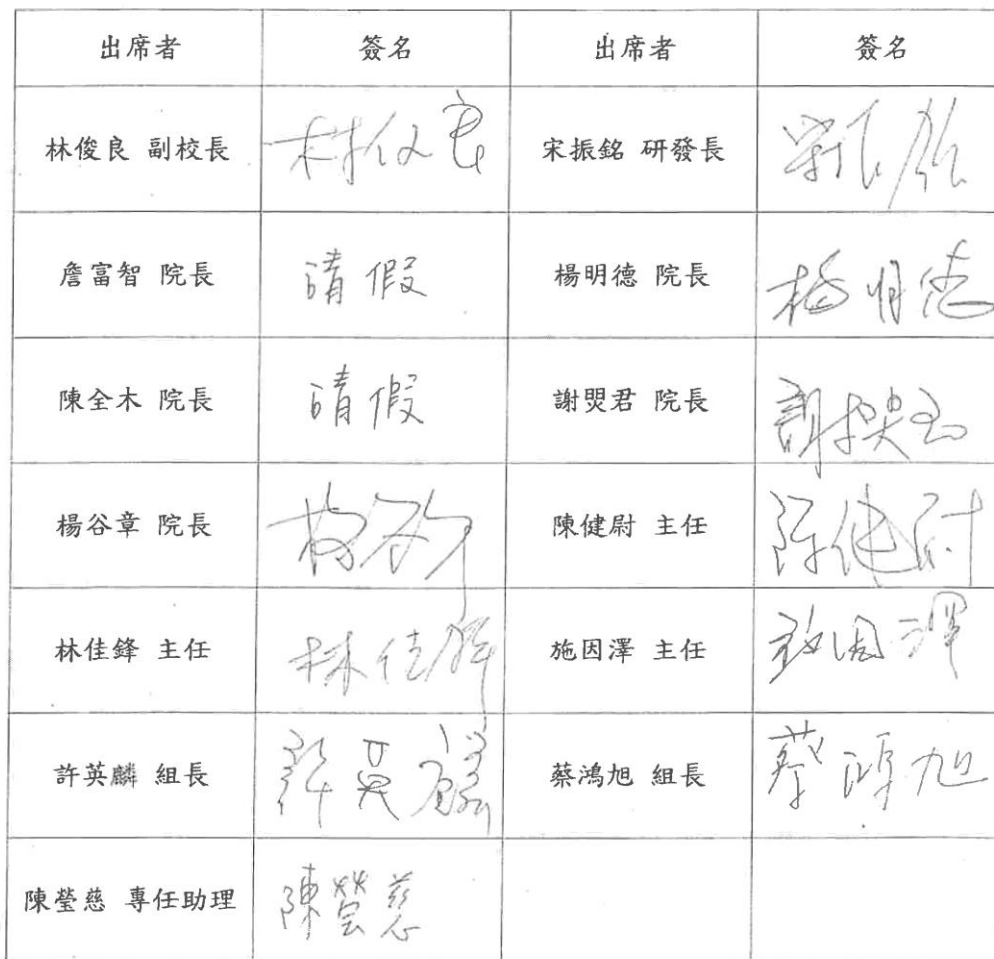 出席者 簽名 出席者 簽名
林俊良 副校長 林俊良 宋振銘 研發長 宋振銘
詹富智 院長 請假 楊明德 院長 楊明德
陳全木 院長 請假 謝焸君 院長
楊谷章 院長 楊谷章 陳健尉 主任 陳健尉
林佳鋒 主任 林佳鋒 施因澤 主任 施因澤
許英麟 組長 許英麟 蔡鴻旭 組長 蔡鴻旭
陳瑩慈 專任助理 陳瑩慈